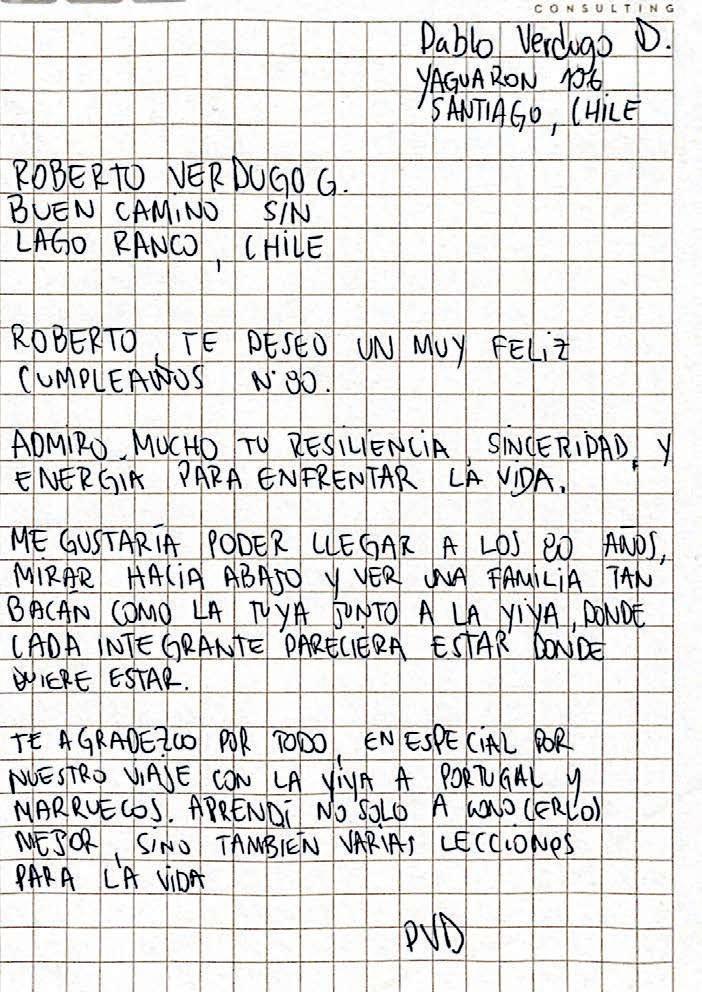 CONSULTING
Pablo Verdugo D.
YAGUARON 106
SANTIAGO, CHILE
ROBERTO VERDUGO G.
BUEN CAMINO S/N
LAGO RANCO, CHILE
ROBERTO, TE DESEO UN MUY FELIZ
CUMPLEAÑOS N°80.
ADMIRO MUCHO TU RESILIENCIA, SINCERIDAD, Y
ENERGIA PARA ENFRENTAR LA VIDA.
ME GUSTARÍA PODER LLEGAR A LOS 80 AÑOS,
MIRAR HACIA ABAJO Y VER UNA FAMILIA TAN
BACÁN COMO LA TUYA JUNTO A LA YIYA, DONDE
CADA INTEGRANTE PARECIERA ESTAR DONDE
QUIERE ESTAR.
TE AGRADEZCO POR TODO, EN ESPECIAL POR
NUESTRO VIAJE CON LA YIYA A PORTUGAL Y
MARRUECOS. APRENDÍ NO SOLO A CONOCERLOS
MEJOR, SINO TAMBIÉN VARIAS LECCIONES
PARA LA VIDA
PVD